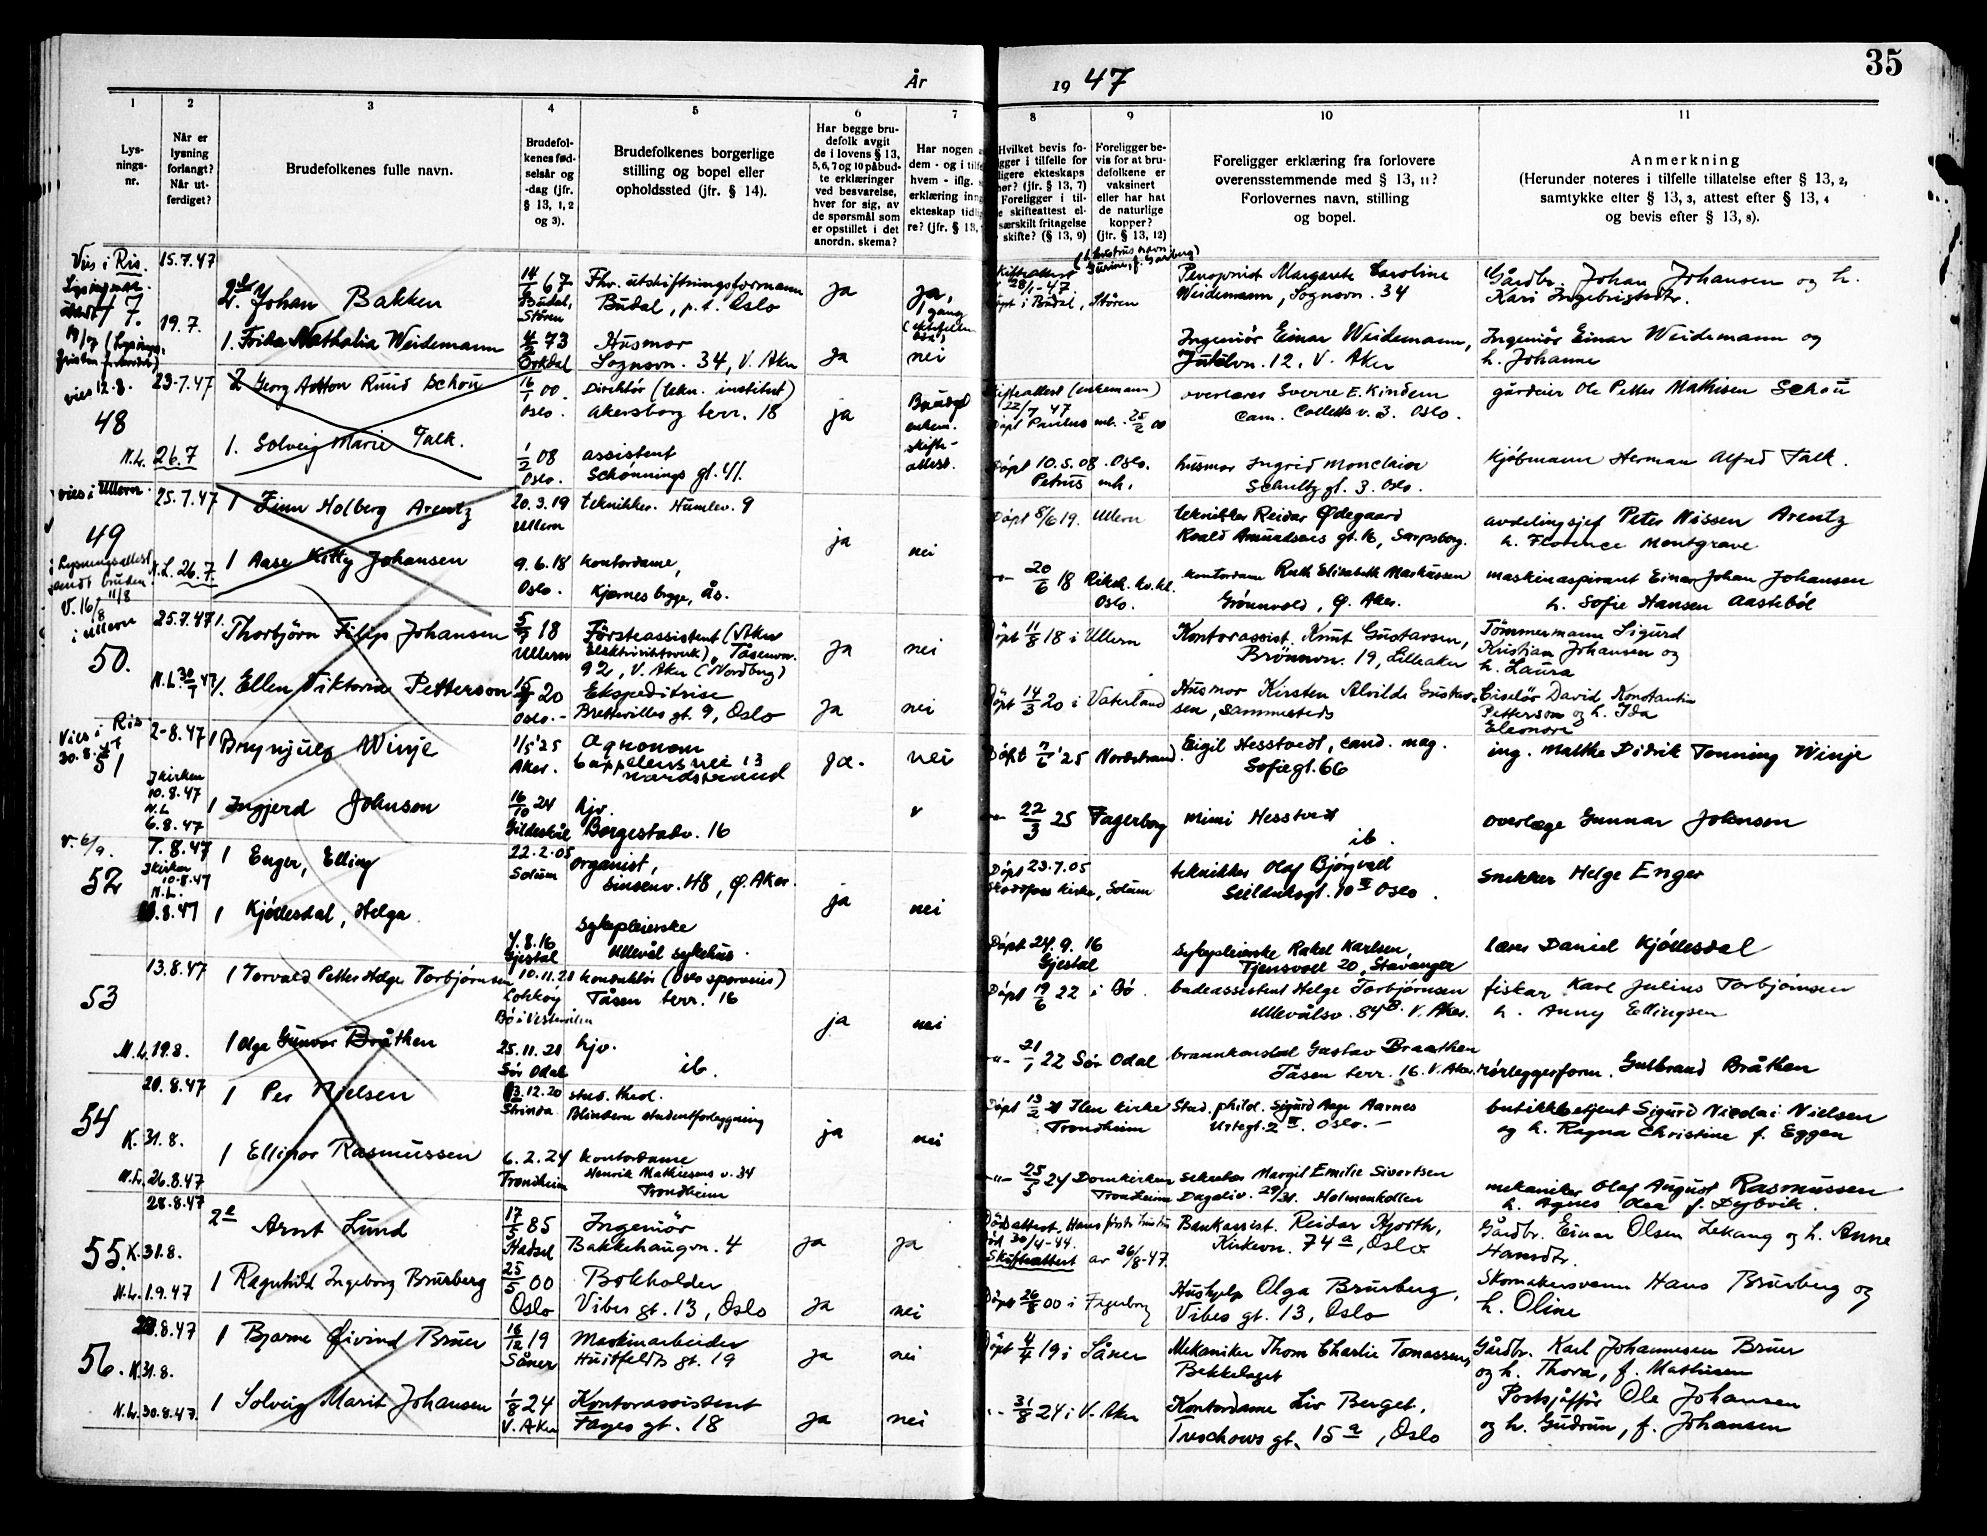 35
År 1947
1 2 3 4 5 6 7 8 9 10 11
Lys-
nings-
nr.
Når er
lysning
forlangt?
Når ut-
ferdiget?
Brudefolkenes fulle navn.
Brudefol-
kenes fød-
selsår og
-dag (jfr.
§ 13, 1, 2
og 3).
Brudefolkenes borgerlige
stilling og bopel eller
opholdssted (jfr. § 14).
Har begge bru-
defolk avgit
de i lovens § 13,
5, 6, 7 og 10 påbud-
te erklæringer
ved besvarelse,
hver for sig, av
de spørsmål som
er opstillet i det
anordn. skema?
Har nogen a
dem - og i tilf
hvem - iflg.
erklæring inng
ekteskap tidl
re? (jfr. § 13,
Hvilket bevis fo-
igger i tilfelle for
ligere ekteskaps
hør? (jfr. § 13, 7)
Foreligger i til-
le skifteattest el-
særskilt fritagelse
skifte? (§ 13, 9)
Foreligger be-
vis for at bru-
defolkene er
vaksinert
eller har hat
de naturlige
kopper?
(jfr. § 13, 12)
Foreligger erklæring fra forlovere
overensstemmende med § 13, 11?
Forlovernes navn, stilling
og bopel.
Anmerkning
(Herunder noteres i tilfelle tillatelse efter § 13, 2,
samtykke efter § 13, 3, attest efter § 13, 4
og bevis efter § 13, 8).
Vies i Ris. 15.7.47
Johan Bakken 14/1 67 Fhv. utskiftningsformann ja ja, Pensjonist Margarete Caroline Gårdbr. Johan Johansen og h.
Budal, Støren Budal, p.t. Oslo Døpt i Budal, Støren Weidemann, Sognsvn. 34 Kari Ingebrigtsdtr.
47. 19.7. 1. Frika Nathalia Weidemann 73 Husmor ja nei Ingeniør Einar Weidemann, Ingeniør Einar Weidemann og
Orkdal Sognsvn. 34, V. Aker Jutulvn. 12. V. Aker h. Johanne
vies 12.8. 23-7.47 2. Georg Anton Ruud Schou 16/1 00. Direktør (tekn. institut) ja Skifteattest (enkemann) overlærer Sverre E. Kindem gårdeier Ole Petter Mathisen Schou
Oslo. Akersborg terr. 18 22/7 47 Døpt Paulus mh. 25/2 00 Cam. Colletts v. 3. Oslo.
48 N.L. 26.7 1. Solveig Marie Falk. 1/2 08 assistent skifte-attest. Døpt 10.5.08. Oslo. husmor Ingrid Monclair kjøbmann Herman Alfred Falk.
Oslo. Schønnings gt. 41. Petrus mh. Schultz gt. 3. Oslo.
vies i Ullern. 25.7.47 1 Finn Holberg Arentz 20.3.19 tekniker. Humlev. 9 ja nei Døpt 8/6 19. Ullern tekniker Reidar Ødegaard avdelingsjef Peter Nissen Arentz
49 Ullern Roald Amundsens gt. 16, Sarpsborg. h. Florence Montgrave
N.L. 26.7. 1 Aase Kitty Johansen 9.6.18 kontordame, 20/6 18 kontordame Ruth Elisabeth Markussen maskinaspirant Einar Johan Johansen
Oslo. Kjernes brygge, ås. Oslo. Grønnvold, Ø. Aker. h. Sofie Hansen Aastebøl
V. 16/8 i Ullern 25.7.47 1. Thorbjørn Filip Johansen 5/7 18 Førsteassistent (Aker ja nei Døpt 11/8 18 i Ullern Kontorassist. Knut Gustavsen, Tømmermann Sigurd
50. Ullern elektrisitetsverk), Tåsenvn. Brønnvn. 19, Lilleaker Kristian Johansen og
92, V. Aker (Nordberg) h. Laura
N.L. 30/7 47 1. Ellen Viktoria Petterson 20 Ekspeditrise ja nei Døpt 14/3 20 i Vaterland Husmor Kirsten Alvilde Gustav- Ciselør David Konstantin
Oslo.- Brettevilles gt. 9, Oslo sen, sammesteds Petterson og h. Ida
Eleonore
Vies i Ris 30.8.47 2-8.47 1 Brynjulf Winje 1/5'25 Agronom ja. nei Døpt 7/6'25 Nordstrand. Eigil Hesstvedt, cand. mag. ing. Maltke Didrik Tonning Winje
51 Aker. Cappelens vei 13 Sofiegt. 66
nordstrand
I kirken 10.8.47
N.L. 6.8.47 1 Ingjerd Johnson 16/10 24 hjv. 22/3 25 Fagerborg Mimi Hesstvedt overlæge Gunnar Johnson
Gildeskål Borgestadv. 16 ib.
V. 6/9. 7.8.47 1 Enger, Elling 22.2.05 organist, ja nei Døpt 23.7.05 tekniker Olaf Bjørgvell Snekker Helge Enger
52 I kirken 10.8.47 Solum Sinsenv. 48, Ø. Aker. kirke, Solum Seilduksgt. 10 Oslo.
N.L. 8.47 1 Kjøllesdal, Helga Sykepleierske
4.8.16 Ullevål sykehus. Døpt 24.9.16 sykepleierske Rakel Karlsen, lærer Daniel Kjøllesdal
Gjestal Gjestal Tjensvoll 20, Stavanger
13.8.47 1 Torvald Petter Helge Torbjørnsen 10.11.21 konduktør (Oslo sporveie) ja nei Døpt 19/6 22 i Bø. badeassistent Helge Torbjørnsen fisker Karl Julius Torbjørnsen
53 Tåsen terr. 16 Ullevålsv. 84 B. V. Aker. h. Anny Ellingsen
Bø i Vesterålen
N.L. 19.8. 1 Olga Gunvor Bråthen 25.11.21 hjv. 21/1 22 Sør Odal brannkonstal Gustav Braathen rørleggerform. Gulbrand Bråthen
Sør Odal ib. Tåsen terr. 16. V. Aker.
20.8.47 1 Per Nielsen 13.12.20 stud. theol. ja nei Døpt 13/2 21 Ilen kirke Stud. phild. Sigurd Aage Aarnes butikkbetjent Sigurd Nicolai Nielsen
54 K. 31.8. Strinda. Blindern studentforleggning Trondheim Urtegt. 2 Oslo.- og h. Ragna Christine f. Eggen
1 Ellinor Rasmussen 6.2.24 kontordame
N.L. 26.8.47 Trondheim Henrik Mathiesens v. 34 25/5 24 Domkirken sekretær Margit Emilie Sivertsen mekaniker Olaf August Rasmussen
Trondheim Trondheim Dagaliv. 29/31. Holmenkollen h. Agnes Olea f. Dybvik.
28.8.47 2 Arnt Lund 17/5 85 Ingeniør ja ja Dødsattest. Hans første hustru Bankassist. Reidar Hjorth, Gårdbr. Einar Olsen Lekang og h. Anne
55. K. 31.8. Hadsel Bakkehaugvn. 4 død 30/4-44. Kirkevn. 74a, Oslo Hansdtr.
Skifteattest av 26/8-47.
N.L. 1.9.47 1 Ragnhild Ingeborg Brurberg 25/5 00 Bokholder ja nei Døpt 26/8 00 i Fagerborg Hushjelp Olga Brurberg, Skomakersvenn Hans Brurberg og
Oslo Vibes gt. 13, Oslo Vibes gt. 13, Oslo h. Oline
8.47 1 Bjarne Øivind Bruer 16/12 19 Maskinarbeider ja nei Døpt 4/4 19 i Såner Mekaniker Thom Charlie Tomassen, Gårdbr. Karl Johannesen Bruer
56. K. 31.8. Såner Huitfeldts gt. 19 Bekkelaget og h. Thora, f. Mathisen
N.L. 30.8.47. 1 Solveig Marit Johansen 1/8 24 Kontorassistent ja nei 31/8 24 i V. Aker Kontordame Liv Berget, Postsjåffør Ole Johansen
V. Aker Fages gt. 18 Treschows gt. 15a, Oslo og h. Gudrun, f. Johansen